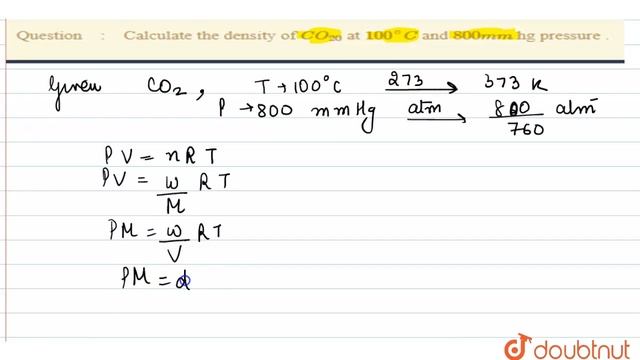 Question : Calculate the density of CO₂₍g₎ at 100°C and 800mm hg pressure .
Given CO₂ , T → 100°C 273 → 373 K
P → 800 mm Hg atm → 800/760 atm
PV = nRT
PV = w/M RT
PM = w/V RT
PM = d
doubtnut